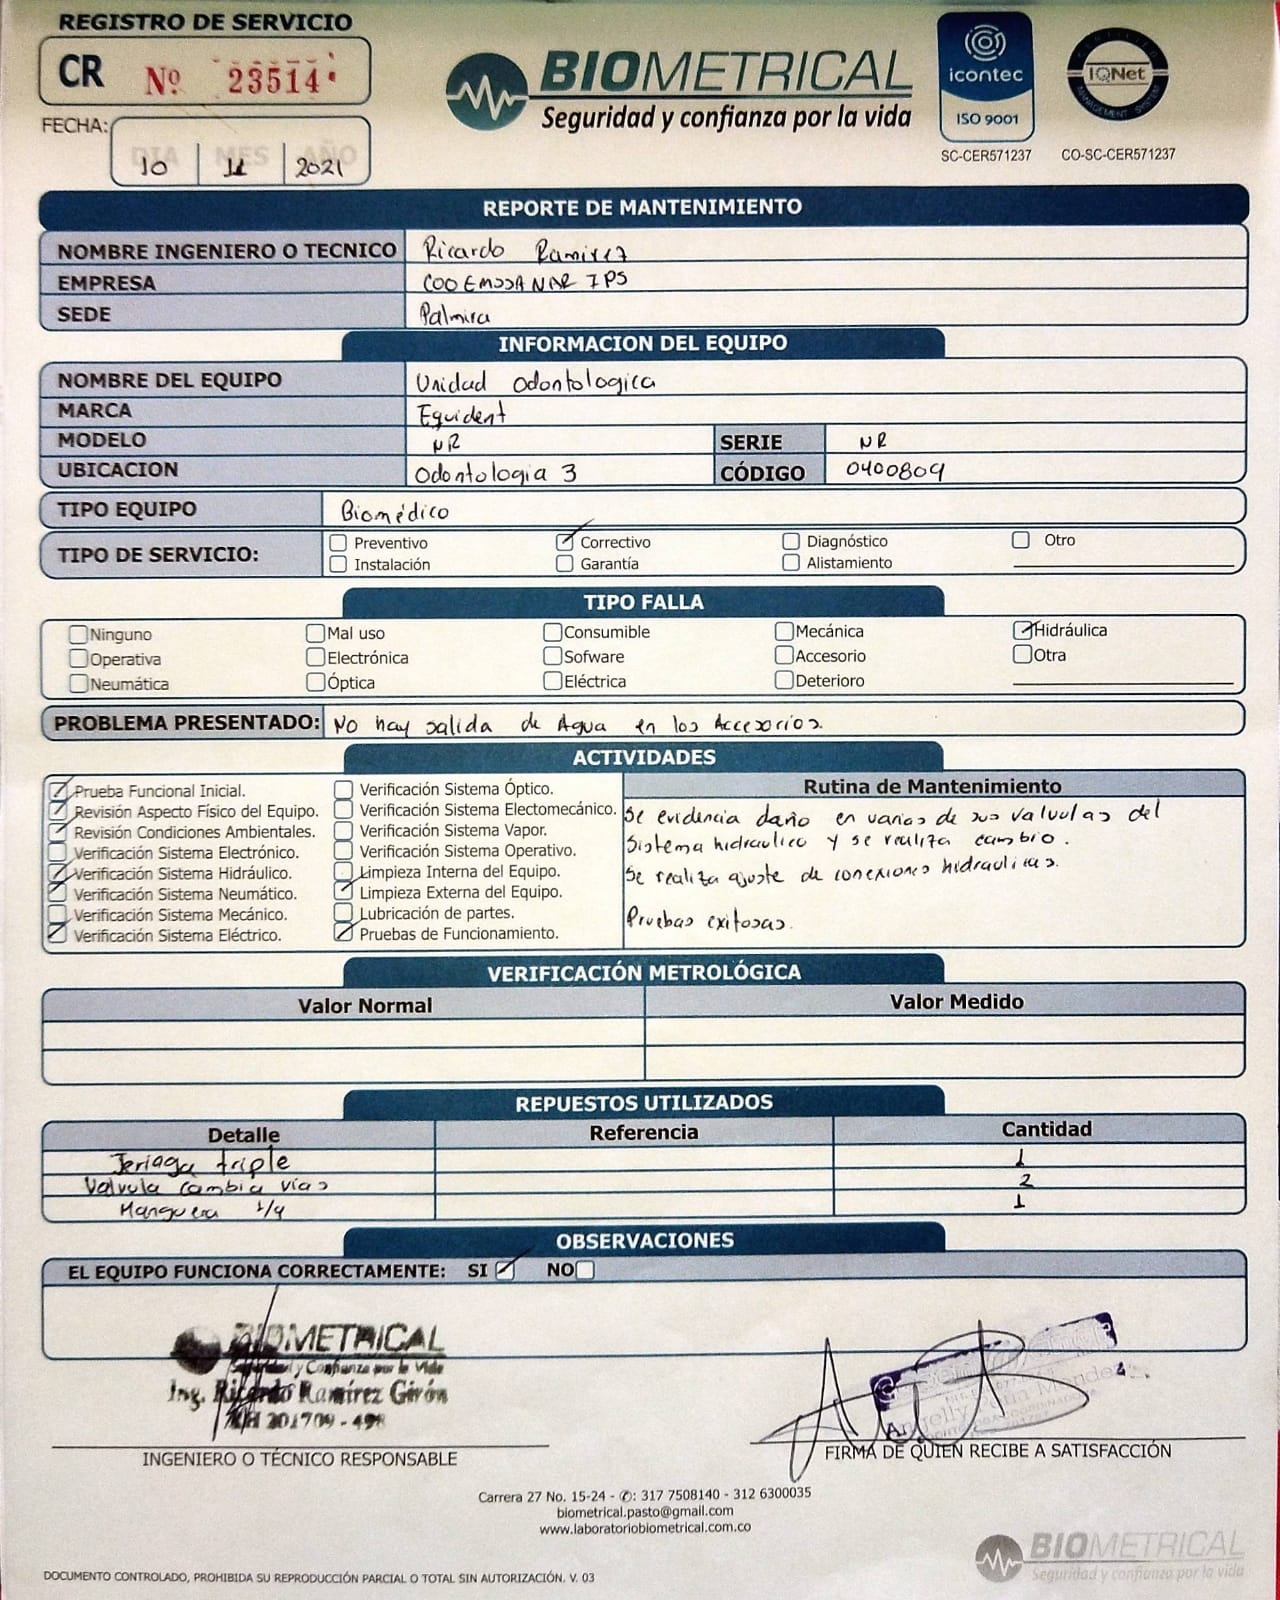 REGISTRO DE SERVICIO
CR Nº 23514
BIOMETRICAL
Seguridad y confianza por la vida
icontec
ISO 9001
SC-CER571237
CERTIFIED
IQNet
MANAGEMENT SYSTEM
CO-SC-CER571237
FECHA:
DIA MES AÑO
10 11 2021
REPORTE DE MANTENIMIENTO
NOMBRE INGENIERO O TECNICO Ricardo Ramirez
EMPRESA COOEMSSANAR IPS
SEDE Palmira
INFORMACION DEL EQUIPO
NOMBRE DEL EQUIPO Unidad Odontologica
MARCA Equident
MODELO NR SERIE NR
UBICACION Odontologia 3 CÓDIGO 0400809
TIPO EQUIPO Biomédico
TIPO DE SERVICIO:
Preventivo Correctivo Diagnóstico Otro
Instalación Garantía Alistamiento
TIPO FALLA
Ninguno Mal uso Consumible Mecánica Hidráulica
Operativa Electrónica Sofware Accesorio Otra
Neumática Óptica Eléctrica Deterioro
PROBLEMA PRESENTADO: No hay salida de Agua en los Accesorios.
ACTIVIDADES
Prueba Funcional Inicial.
Revisión Aspecto Físico del Equipo.
Revisión Condiciones Ambientales.
Verificación Sistema Electrónico.
Verificación Sistema Hidráulico.
Verificación Sistema Neumático.
Verificación Sistema Mecánico.
Verificación Sistema Eléctrico.
Verificación Sistema Óptico.
Verificación Sistema Electomecánico.
Verificación Sistema Vapor.
Verificación Sistema Operativo.
Limpieza Interna del Equipo.
Limpieza Externa del Equipo.
Lubricación de partes.
Pruebas de Funcionamiento.
Rutina de Mantenimiento
Se evidencia daño en varias de sus valvulas del
Sistema hidraulico y se realiza cambio.
Se realiza ajuste de conexiones hidraulicas.
Pruebas exitosas.
VERIFICACIÓN METROLÓGICA
Valor Normal Valor Medido
REPUESTOS UTILIZADOS
Detalle Referencia Cantidad
Jeriaga triple 1
Valvula cambia vias 2
Manguera 1/4 1
OBSERVACIONES
EL EQUIPO FUNCIONA CORRECTAMENTE: SI NO
BIOMETRICAL
Seguridad y Confianza por la Vida
Ing. Ricardo Ramírez Girón
INGENIERO O TÉCNICO RESPONSABLE
Angelly
FIRMA DE QUIEN RECIBE A SATISFACCIÓN
Carrera 27 No. 15-24 - ✆: 317 7508140 - 312 6300035
biometrical.pasto@gmail.com
www.laboratoriobiometrical.com.co
BIOMETRICAL
Seguridad y confianza por la vida
DOCUMENTO CONTROLADO, PROHIBIDA SU REPRODUCCIÓN PARCIAL O TOTAL SIN AUTORIZACIÓN. V. 03